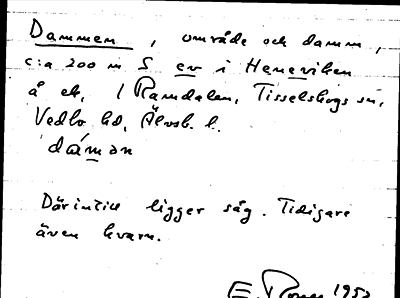 Dammen, område och damm,
c:a 200 m S ev i Heneviken
å ek, / Ramdalen, Tisselskogs sn,
Vedbo hd, Älvsb. l.
dáman
Därintill ligger såg. Tidigare
även kvarn.
E. 1952